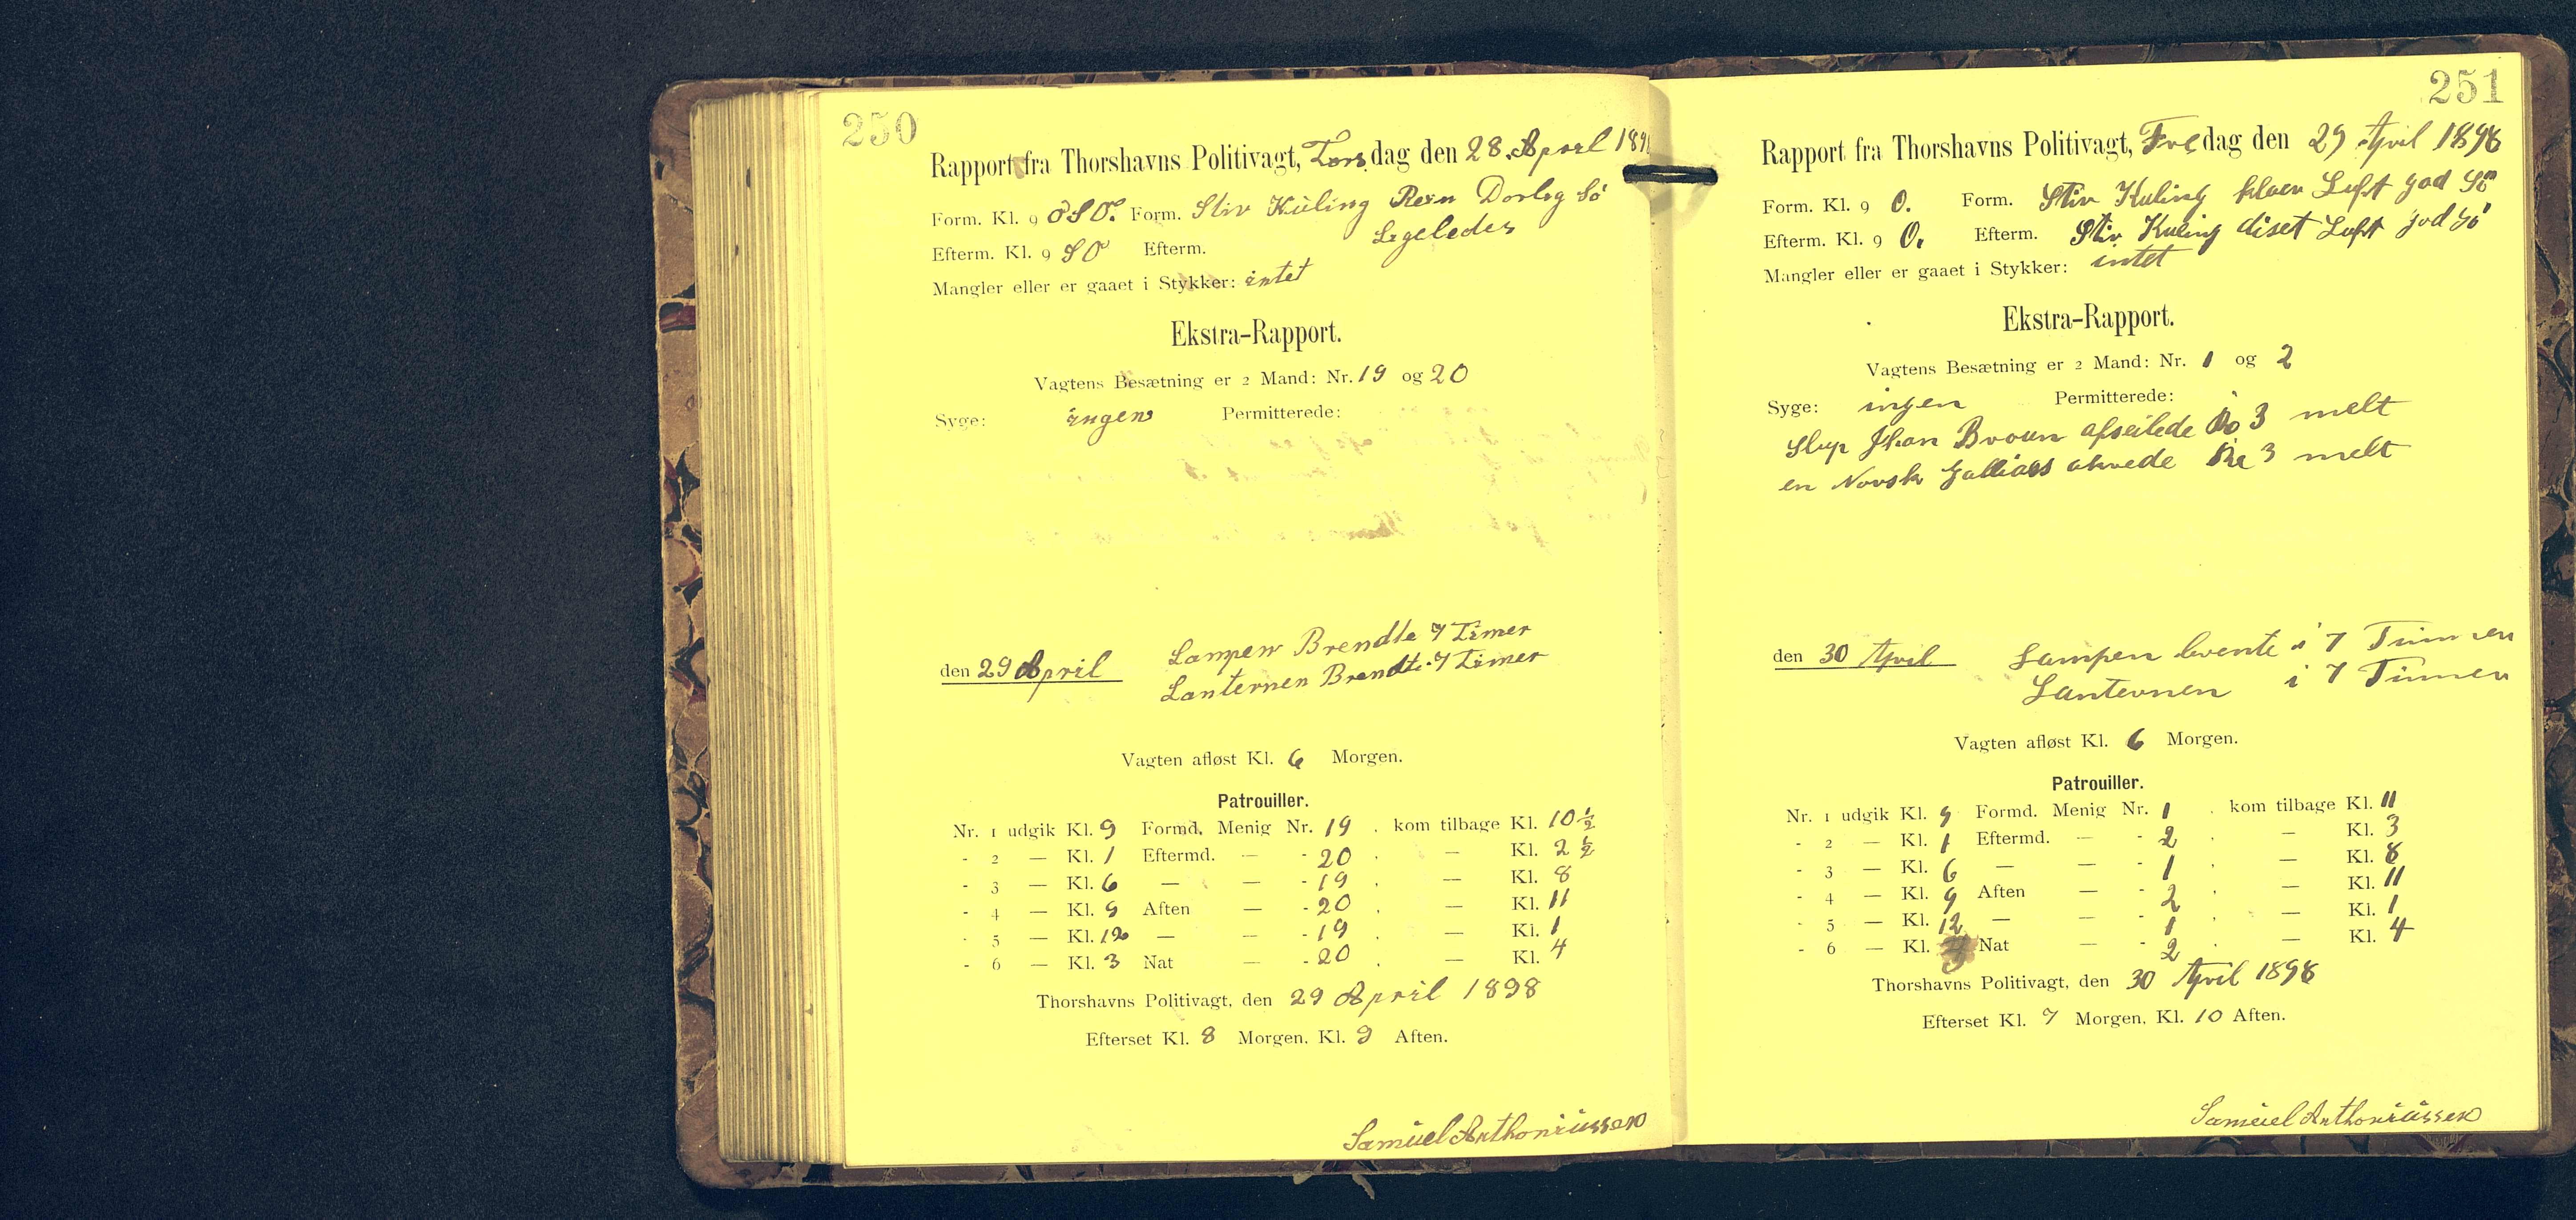 250
Rapport fra Thorshavns Politivagt, Torsdag den 28. April 189
Form. Kl. 9 OSO. Form. Stiv Kuling Rein Dorleg Sö
Efterm. Kl. 9 SO Efterm. Ligeledes
Mangler eller er gaaet i Stykker: intet
Ekstra-Rapport.
Vagtens Besætning er 2 Mand: Nr. 19 og 20
Syge: ingen Permitterede:
den 29 April Lampen Brendte 7 Timer
Lanternen Brendte 7 Timer
Vagten afløst Kl. 6 Morgen.
Patrouiller.
Nr. 1 udgik Kl. 9 Formd. Menig Nr. 19 . kom tilbage Kl. 10 ½
- 2 — Kl. 1 Eftermd. — - 20 . — Kl. 2 ½
- 3 — Kl. 6 — — - 19 . — Kl. 8
- 4 — Kl. 9 Aften — - 20 . — Kl. 11
- 5 — Kl. 12 — — - 19 . — Kl. 1
- 6 — Kl. 3 Nat — - 20 . — Kl. 4
Thorshavns Politivagt, den 29 April 1898
Efterset Kl. 8 Morgen, Kl. 9 Aften.
Samuel Anthoniussen
251
Rapport fra Thorshavns Politivagt, Fredag den 29 April 1898
Form. Kl. 9 O. Form. Stiv Kuling klaer Luft god Sö
Efterm. Kl. 9 O. Efterm. Stiv Kuling diset Luft god Sö
Mangler eller er gaaet i Stykker: intet
Ekstra-Rapport.
Vagtens Besætning er 2 Mand: Nr. 1 og 2
Syge: ingen Permitterede:
Slup Jhon Broun afseilede No 3 melt
en Norsk Gallias akrede No 3 melt
den 30 April Lampen brente i 7 Timmen
Lanternen i 7 Timmen
Vagten afløst Kl. 6 Morgen.
Patrouiller.
Nr. 1 udgik Kl. 9 Formd. Menig Nr. 1 . kom tilbage Kl. 11
- 2 — Kl. 1 Eftermd. — - 2 . — Kl. 3
- 3 — Kl. 6 — — - 1 . — Kl. 8
- 4 — Kl. 9 Aften — - 2 . — Kl. 11
- 5 — Kl. 12 — — - 1 . — Kl. 1
- 6 — Kl. 3 Nat — - 2 . — Kl. 4
Thorshavns Politivagt, den 30 April 1898
Efterset Kl. 7 Morgen, Kl. 10 Aften.
Samuel Anthoniussen